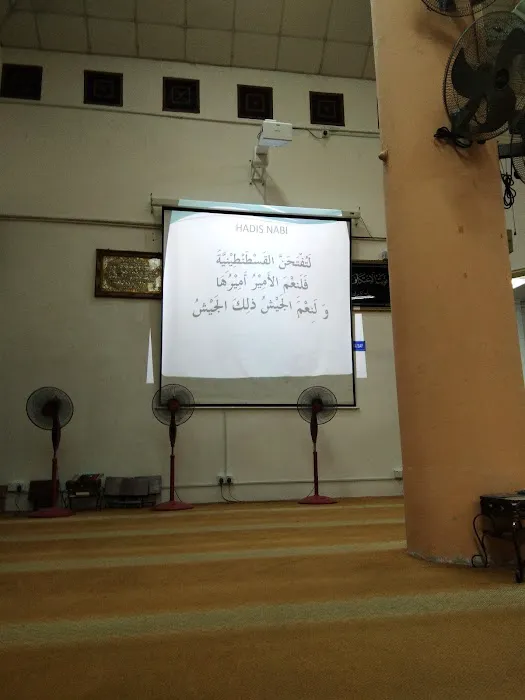 HADIS NABI
لَتُفْتَحَنَّ القُسْطَنْطِيْنِيَّةَ
فَلَنِعْمَ الأَمِيْرُ أَمِيْرُهَا
وَ لَنِعْمَ الجَيْشُ ذلِكَ الجَيْشُ